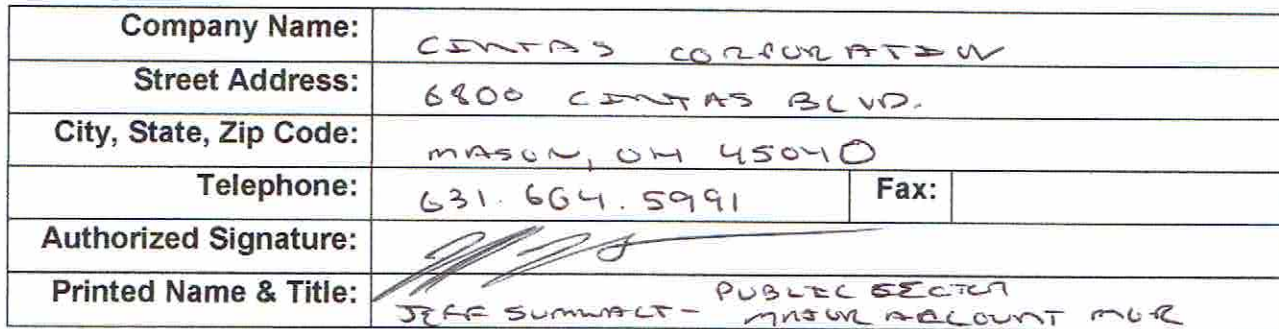 Company Name: CINTAS CORPORATION
Street Address: 6800 CINTAS BLVD.
City, State, Zip Code: MASON, OH 45040
Telephone: 631.664.5991 Fax:
Authorized Signature:
Printed Name & Title: JEFF SUMWALT - PUBLIC SECTOR
MAJOR ACCOUNT MGR